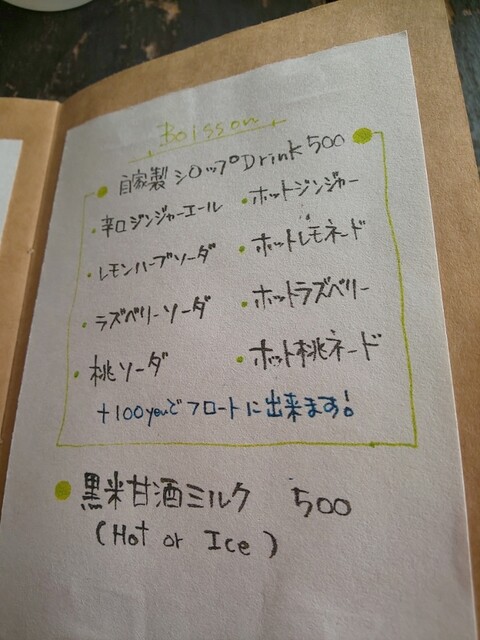 Boisson
自家製シロップDrink 500
・辛口ジンジャーエール
・レモンハーブソーダ
・ラズベリーソーダ
・桃ソーダ
・ホットジンジャー
・ホットレモネード
・ホットラズベリー
・ホット桃ネード
+100yenでフロートに出来ます!
黒米甘酒ミルク 500
(Hot or Ice)